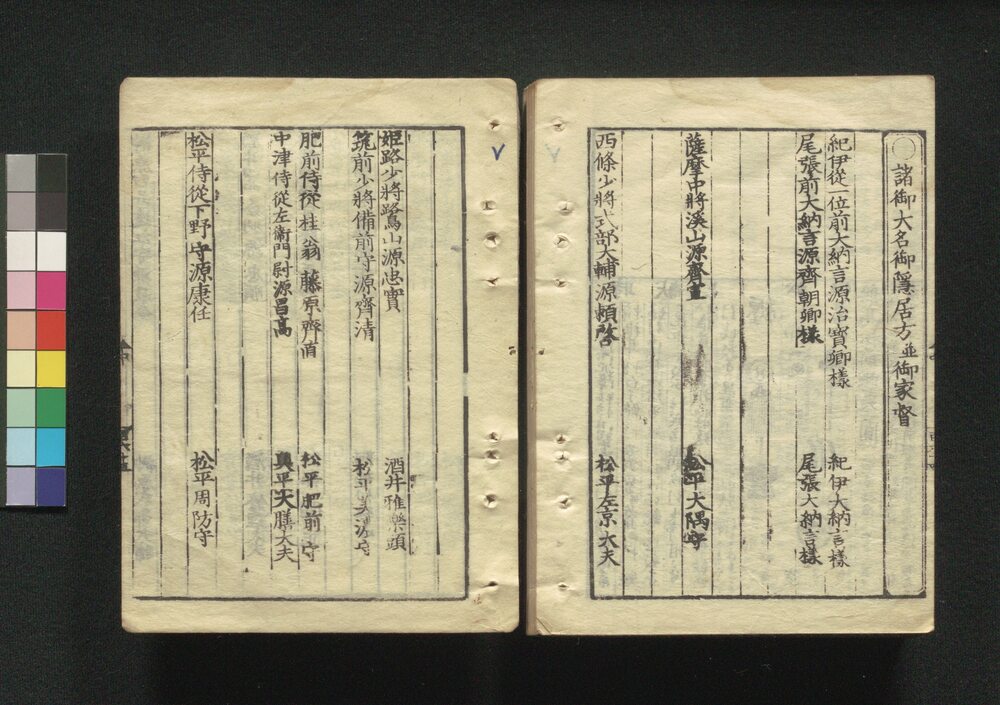 ○諸御大名御隱居方並御家督
紀伊從一位前大納言源治寶卿樣 紀伊大納言樣
尾張前大納言源齊朝卿樣 尾張大納言樣
薩摩中將溪山源齊宣 松平大隅守
西條少將式部大輔源頼啓 松平左京大夫
姫路少將鷺山源忠實 酒井雅樂頭
筑前少將備前守源齊清 松平美濃守
肥前侍從桂翁藤原齊直 松平肥前守
中津侍從左衞門尉源昌高 奥平大膳大夫
松平侍從下野守源康任 松平周防守